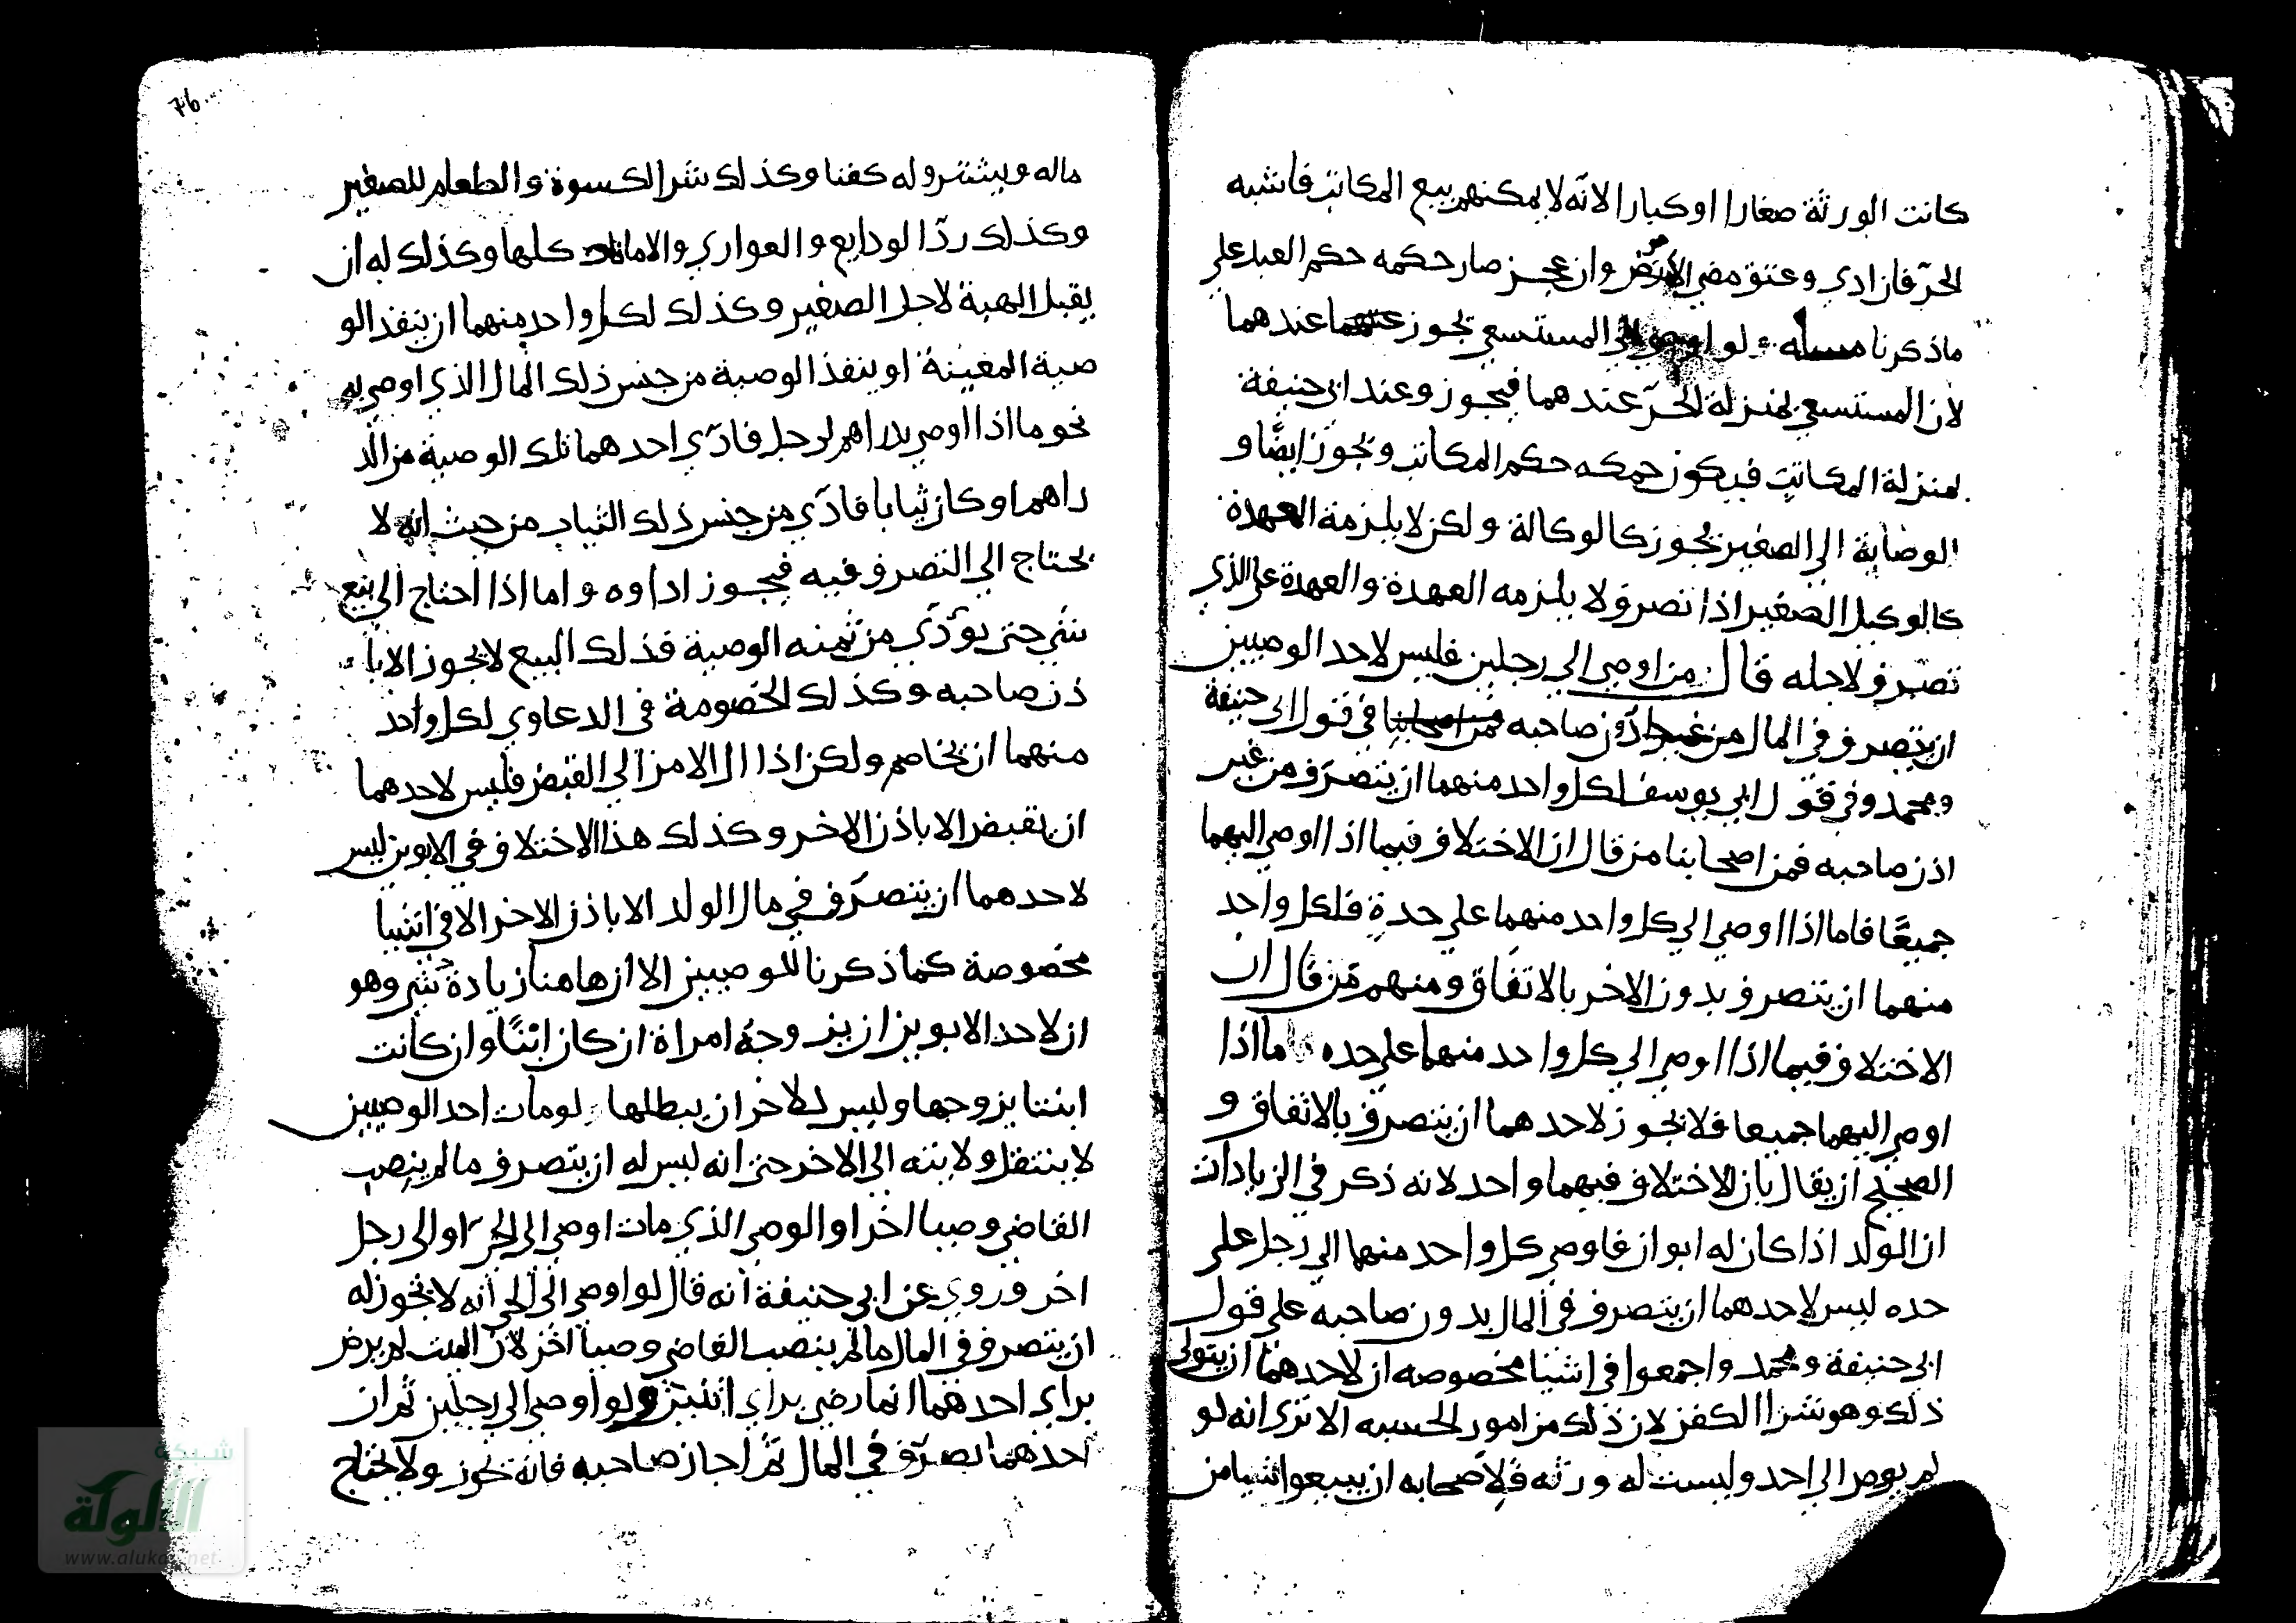 كانت الورثة صغارا اوكبارا لانّه لا يمكنهم بيع المكاتب فاشبه
الحرّ فان ادي وعتق مضي الامر وان عجز صار حكمه حكم العبد علي
ما ذكرنا مسله ولو اوصي الي المستسعي تجوز عندهما
لان المستسعي بمنزلة الحرّ عندهما فيجوز وعند ابي حنيفة
بمنزلة المكاتب فيكون حمكه حكم المكاتب وتجوز ايضًا و
الوصاية الي الصغير تجوز كالوكالة ولكن لا يلزمة العهدة
كالوكيل الصغير اذا تصرف لا يلزمه العهدة والعهدة علي الذي
تصرف لاجله قال من اوصي الي رجلين فليس لاحد الوصيين
ان يتصرف في المال من غير اذن صاحبه في قول ابي حنيفة
ومحمد وفي قول ابي يوسف لكل واحد منهما ان يتصرّف من غير
اذن صاحبه فمن اصحابنا من قال ان الاختلاف فيما اذا اوصي اليهما
جميعًا فاما اذا اوصي الي كل واحد منهما علي حدةٍ فلكل واحد
منهما ان يتصرف بدون الاخر بالاتفاق ومنهم مَن قال ان
الاختلاف فيما اذا اوصي الي كل واحد منهما علي حده اما اذا
اوصي اليهما جميعا فلا تجوز لاحدهما ان يتصرف بالاتفاق و
الصحيح ان يقال بان الاختلاف فيهما واحد لانه ذكر في الزيادات
ان الولد اذا كان له ابوان فاوصي كل واحد منهما الي رجل علي
حده ليس لاحدهما ان يتصرف في المال بدون صاحبه علي قول
ابي حنيفة ومحمد واجمعوا في اشيا مخصوصه ان لاحدهما ان يتولي
ذلك وهو شرا الكفن لان ذلك من امور الحسبه الا تري انه لو
لم يوص الي احد وليست له ورثه فلاصحابه ان يبيعوا شيا من
٧٦
ماله ويشترو له كفنا وكذلك شرا الكسوة والطعام للصغير
وكذلك ردّ الودايع والعواري والامانات كلها وكذلك له ان
يقبل الهبة لاجل الصغير وكذلك لكل واحد منهما ان ينفذ الو
صية المعينة او ينفذ الوصية من جنس ذلك المال الذي اوصي به
نحو ما اذا اوصي بدراهم لرجل فادّي احدهما تلك الوصية من الد
راهم او كان ثيابا فادّي من جنس ذلك الثياب من حيث انه لا
يحتاج الي التصرف فيه فيجوز اداوه واما اذا احتاج الي بيع
شي حتي يؤدّي من ثمنه الوصية فذلك البيع لا يجوز الا با
ذن صاحبه وكذلك الخصومة في الدعاوي لكل واحد
منهما ان يخاصم ولكن اذا ال الامر الي القبض فليس لاحدهما
ان يقبض الا باذن الاخر وكذلك هذا الاختلاف في الابوين ليس
لاحدهما ان يتصرّف في مال الولد الا باذن الاخر الا في اشيا
مخصوصة كما ذكرنا للوصيين الا ان هاهنا زيادة شي وهو
ان لاحد الابوين ان يزوجهُ امراة ان كان ابنًا وان كانت
ابنتا يزوجها وليس للاخر ان يبطلها لو مات احد الوصيين
لا ينتقل ولايته الي الاخر حتي انه ليس له ان يتصرف ما لم ينصب
القاضي وصيا اخر او الوصي الذي مات اوصي الي الحيّ او الي رجل
اخر وروي عن ابي حنيفة انه قال لو اوصي الي الحي انه لا يجوز له
ان يتصرف في المال ما لم ينصب القاضي وصيا اخر لان الميت لم يرض
براي احدهما انما رضي براي اثنين ولو اوصي الي رجلين ثم ان
احدهما تصرّف في المال ثم اجاز صاحبه فانه يجوز ولا يحتاج
شبكة
الألوكة
www.alukah.net